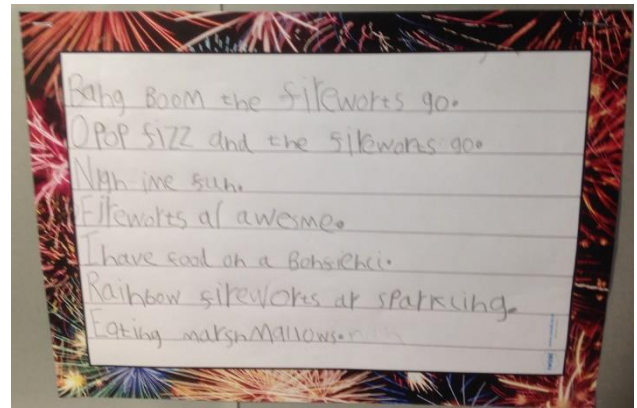 Bang BOOM the fireworts go.
O POP fizz and the fireworts go.
Nigh ime fun.
Fireworts ar awesme.
I have food on a Bonsienci.
Rainbow fireworts ar sparkling.
Eating marshmallows.